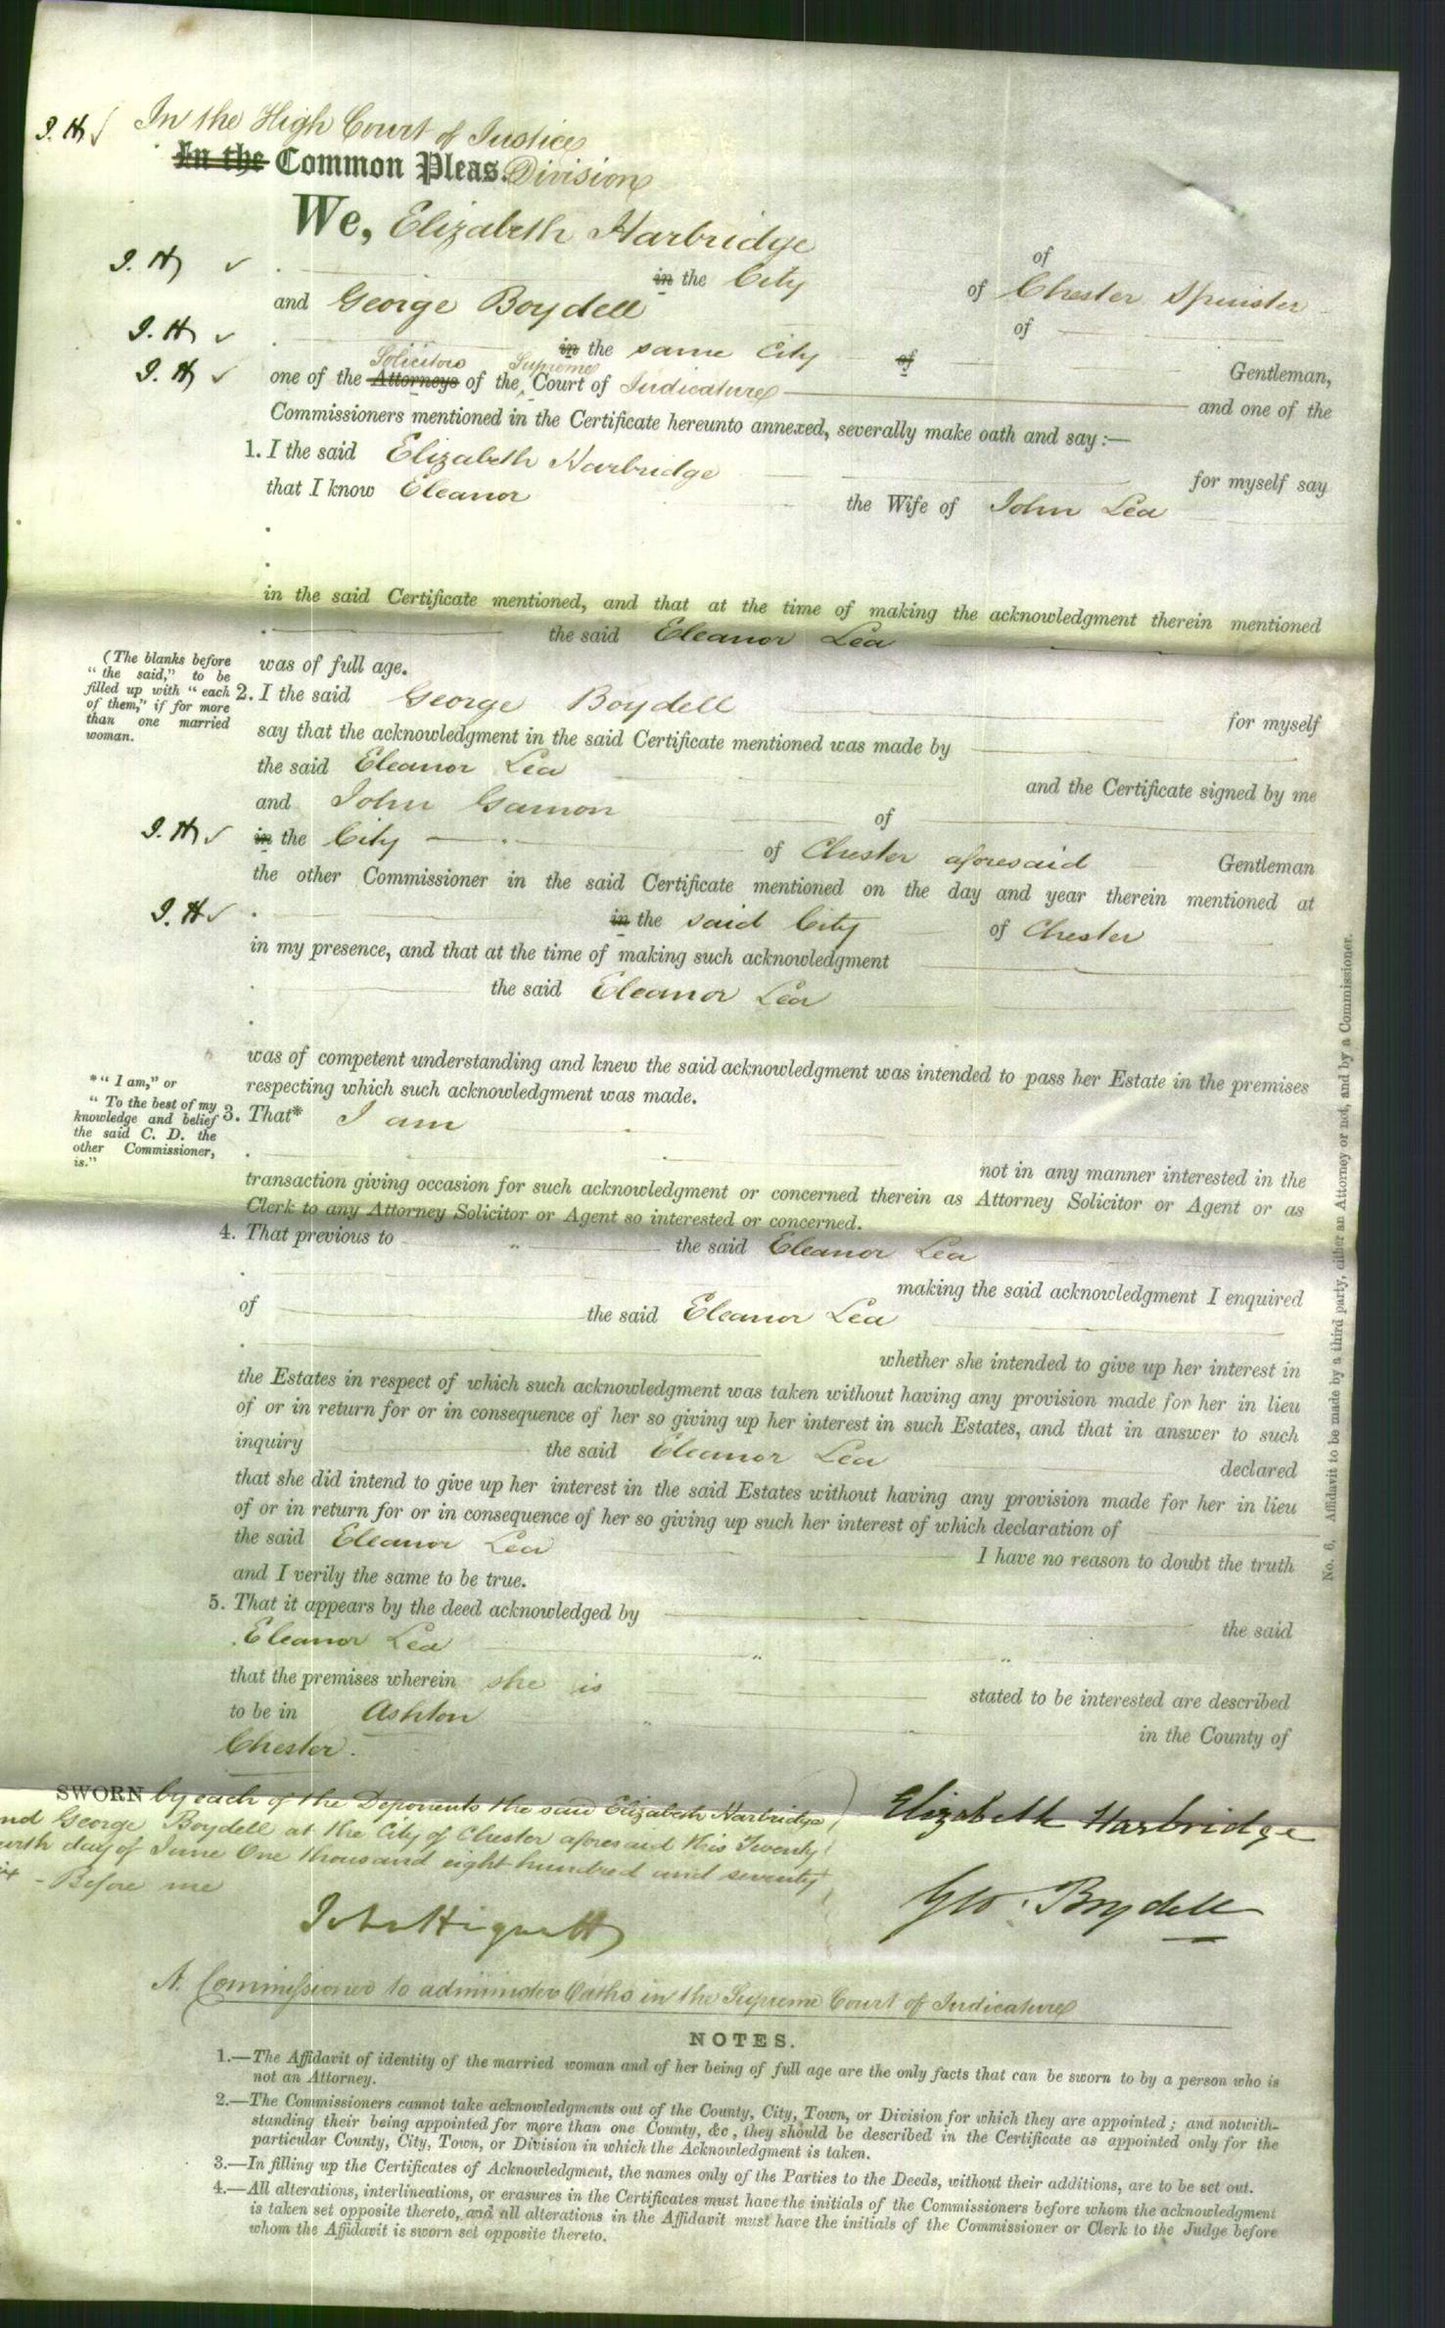 In the High Court of Justice
J. H
In the Common Pleas. Division
We, Elizabeth Harbridge of
J. H in the City of Chester Spinster
and George Boydell of
J. H in the same City of Gentleman,
Solicitors Supreme
J. H one of the Attorneys of the Court of Judicature and one of the
Commissioners mentioned in the Certificate hereunto annexed, severally make oath and say :—
1. I the said Elizabeth Harbridge for myself say
that I know Eleanor the Wife of John Lea
in the said Certificate mentioned, and that at the time of making the acknowledgment therein mentioned
the said Eleanor Lea
was of full age.
(The blanks before
"the said," to be
filled up with "each
of them," if for more
than one married
woman.
2. I the said George Boydell for myself
say that the acknowledgment in the said Certificate mentioned was made by
the said Eleanor Lea and the Certificate signed by me
and John Gamon of
J. H in the City of Chester aforesaid Gentleman
the other Commissioner in the said Certificate mentioned on the day and year therein mentioned at
J. H in the said City of Chester
in my presence, and that at the time of making such acknowledgment
the said Eleanor Lea
was of competent understanding and knew the said acknowledgment was intended to pass her Estate in the premises
respecting which such acknowledgment was made.
*"I am," or
"To the best of my
knowledge and belief
the said C. D. the
other Commissioner,
is."
3. That* I am
not in any manner interested in the
transaction giving occasion for such acknowledgment or concerned therein as Attorney Solicitor or Agent or as
Clerk to any Attorney Solicitor or Agent so interested or concerned.
4. That previous to the said Eleanor Lea
making the said acknowledgment I enquired
of the said Eleanor Lea
whether she intended to give up her interest in
the Estates in respect of which such acknowledgment was taken without having any provision made for her in lieu
of or in return for or in consequence of her so giving up her interest in such Estates, and that in answer to such
inquiry the said Eleanor Lea declared
that she did intend to give up her interest in the said Estates without having any provision made for her in lieu
of or in return for or in consequence of her so giving up such her interest of which declaration of
the said Eleanor Lea I have no reason to doubt the truth
and I verily the same to be true.
5. That it appears by the deed acknowledged by the said
Eleanor Lea
that the premises wherein she is stated to be interested are described
to be in Ashton in the County of
Chester.
SWORN by each of the Deponents the said Elizabeth Harbridge
nd George Boydell at the City of Chester aforesaid this Twenty
urth day of June One thousand eight hundred and seventy
ix - Before me
Elizabeth Harbridge
Geo. Boydell
John Hignett
A Commissioner to administer Oaths in the Supreme Court of Judicature
NOTES.
1.—The Affidavit of identity of the married woman and of her being of full age are the only facts that can be sworn to by a person who is
not an Attorney.
2.—The Commissioners cannot take acknowledgments out of the County, City, Town, or Division for which they are appointed ; and notwith-
standing their being appointed for more than one County, &c, they should be described in the Certificate as appointed only for the
particular County, City, Town, or Division in which the Acknowledgment is taken.
3.—In filling up the Certificates of Acknowledgment, the names only of the Parties to the Deeds, without their additions, are to be set out.
4.—All alterations, interlineations, or erasures in the Certificates must have the initials of the Commissioners before whom the acknowledgment
is taken set opposite thereto, and all alterations in the Affidavit must have the initials of the Commissioner or Clerk to the Judge before
whom the Affidavit is sworn set opposite thereto.
No. 6, Affidavit to be made by a third party, either an Attorney or not, and by a Commissioner.